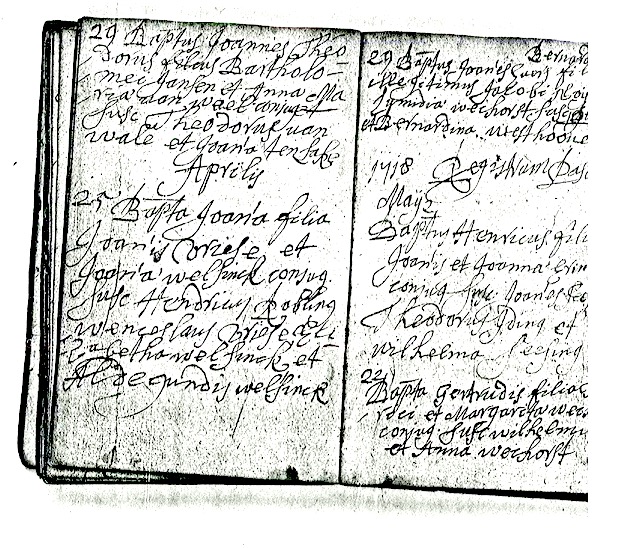 29 Baptus Joannes Theo-
dorus filius Bartholo-
mei Jansen et Anna Ma
ria van wael conjug
susc Theodorus van
wale et Joana
Aprilis
25 Bapta Joana filia
Joanis Vriese et
Joana welsinck conjug
susc Hendricus Robling
wenceslaus Vriese Eli
sabetha welsinck et
Aldegundis welsinck
29 Baptus Joanis fil
Bernard
illegitimus Jacobi
wechorst susc
et Bernardina westhoone
1718 Registrum Bap
Maÿ
Baptus Henricus fili
Joanis et Joanna
conjug susc Joanes
Theodorus et
wilhelma
22 Bapta Gertrudis filia
et Margareta wee
conjug susc wilhelmi
et Anna wechorst